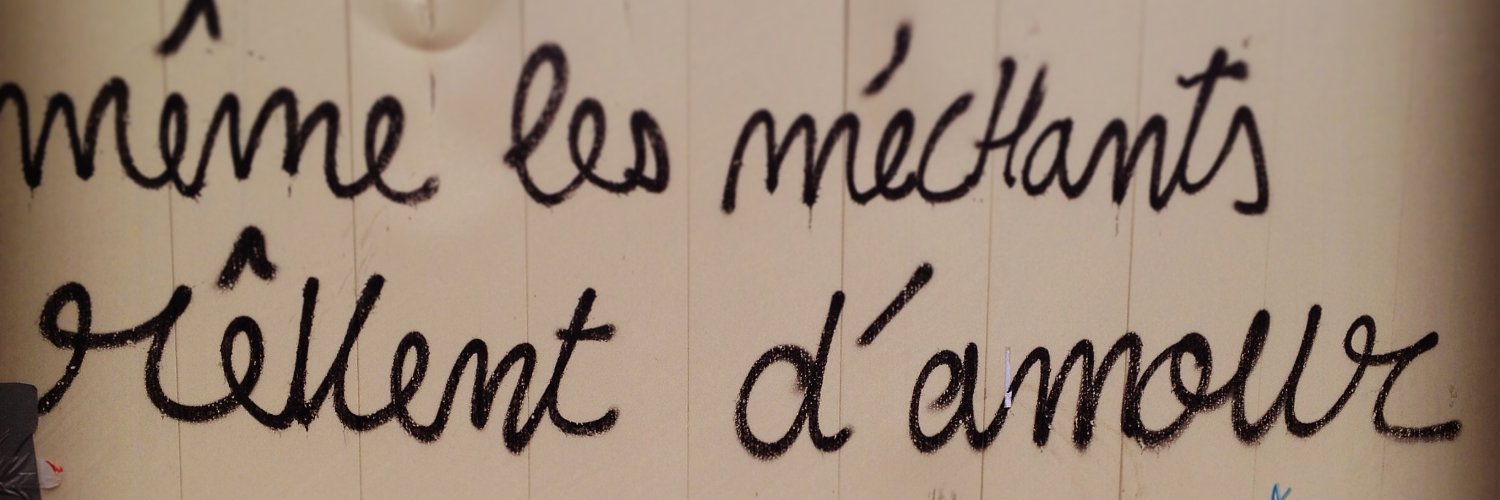 même les mécHants
rêvent d'amour